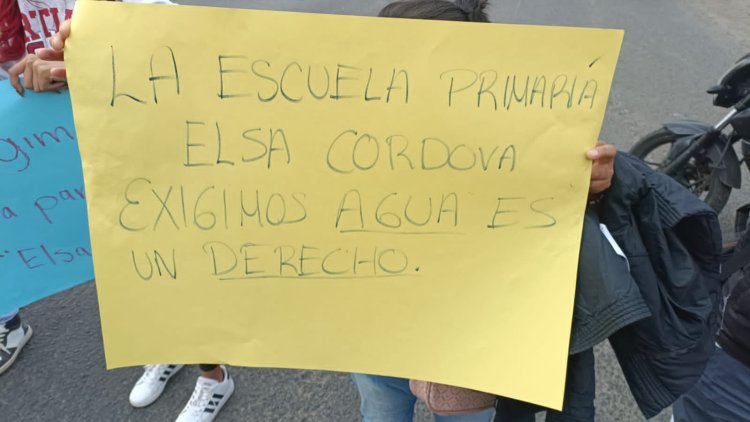 LA ESCUELA PRIMARIA
ELSA CORDOVA
EXIGIMOS AGUA ES
UN DERECHO.
a par
"Elsa